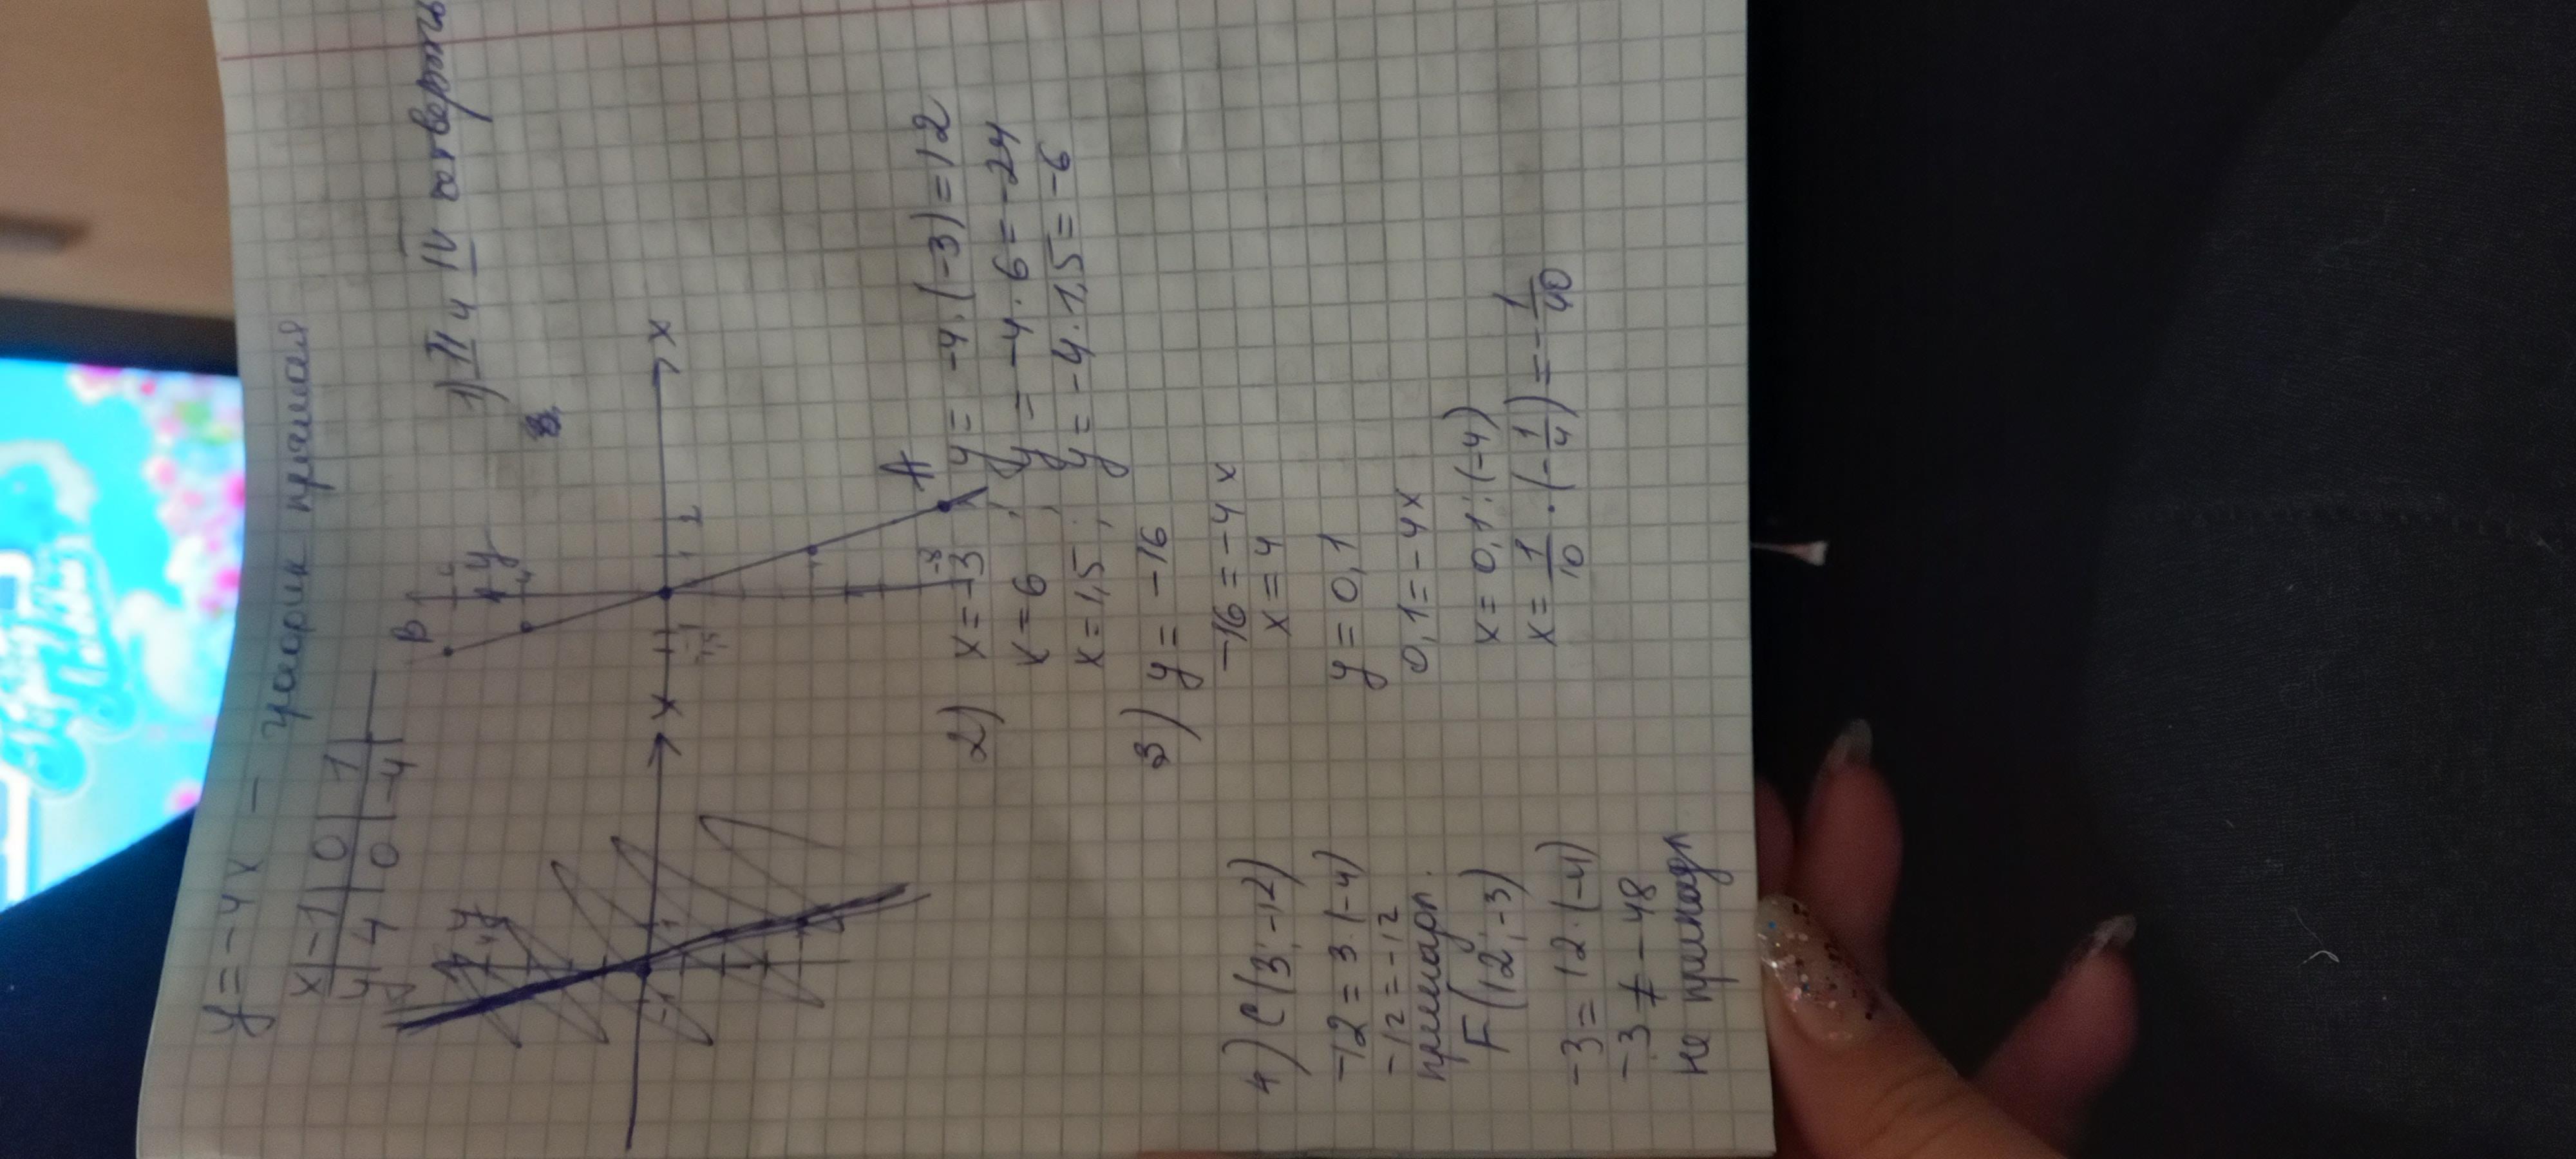 y = -4x - график прямая
x | -1 | 0 | 1
y | 4 | 0 | -4
y
x
-1
1
B
y
4
x
1 2
-1
A
-8
1) II и IV четверть
2) x = -3 ; y = -4 · (-3) = 12
x = 6 ; y = -4 · 6 = -24
x = 1,5 ; y = -4 · 1,5 = -6
3) y = -16
-16 = -4x
x = 4
y = 0,1
0,1 = -4x
x = 0,1 : (-4)
x = 1/10 · (-1/4) = -1/40
4) C (3; -12)
-12 = 3 · (-4)
-12 = -12
принадл.
F (12; -3)
-3 = 12 · (-4)
-3 ≠ -48
не принадл